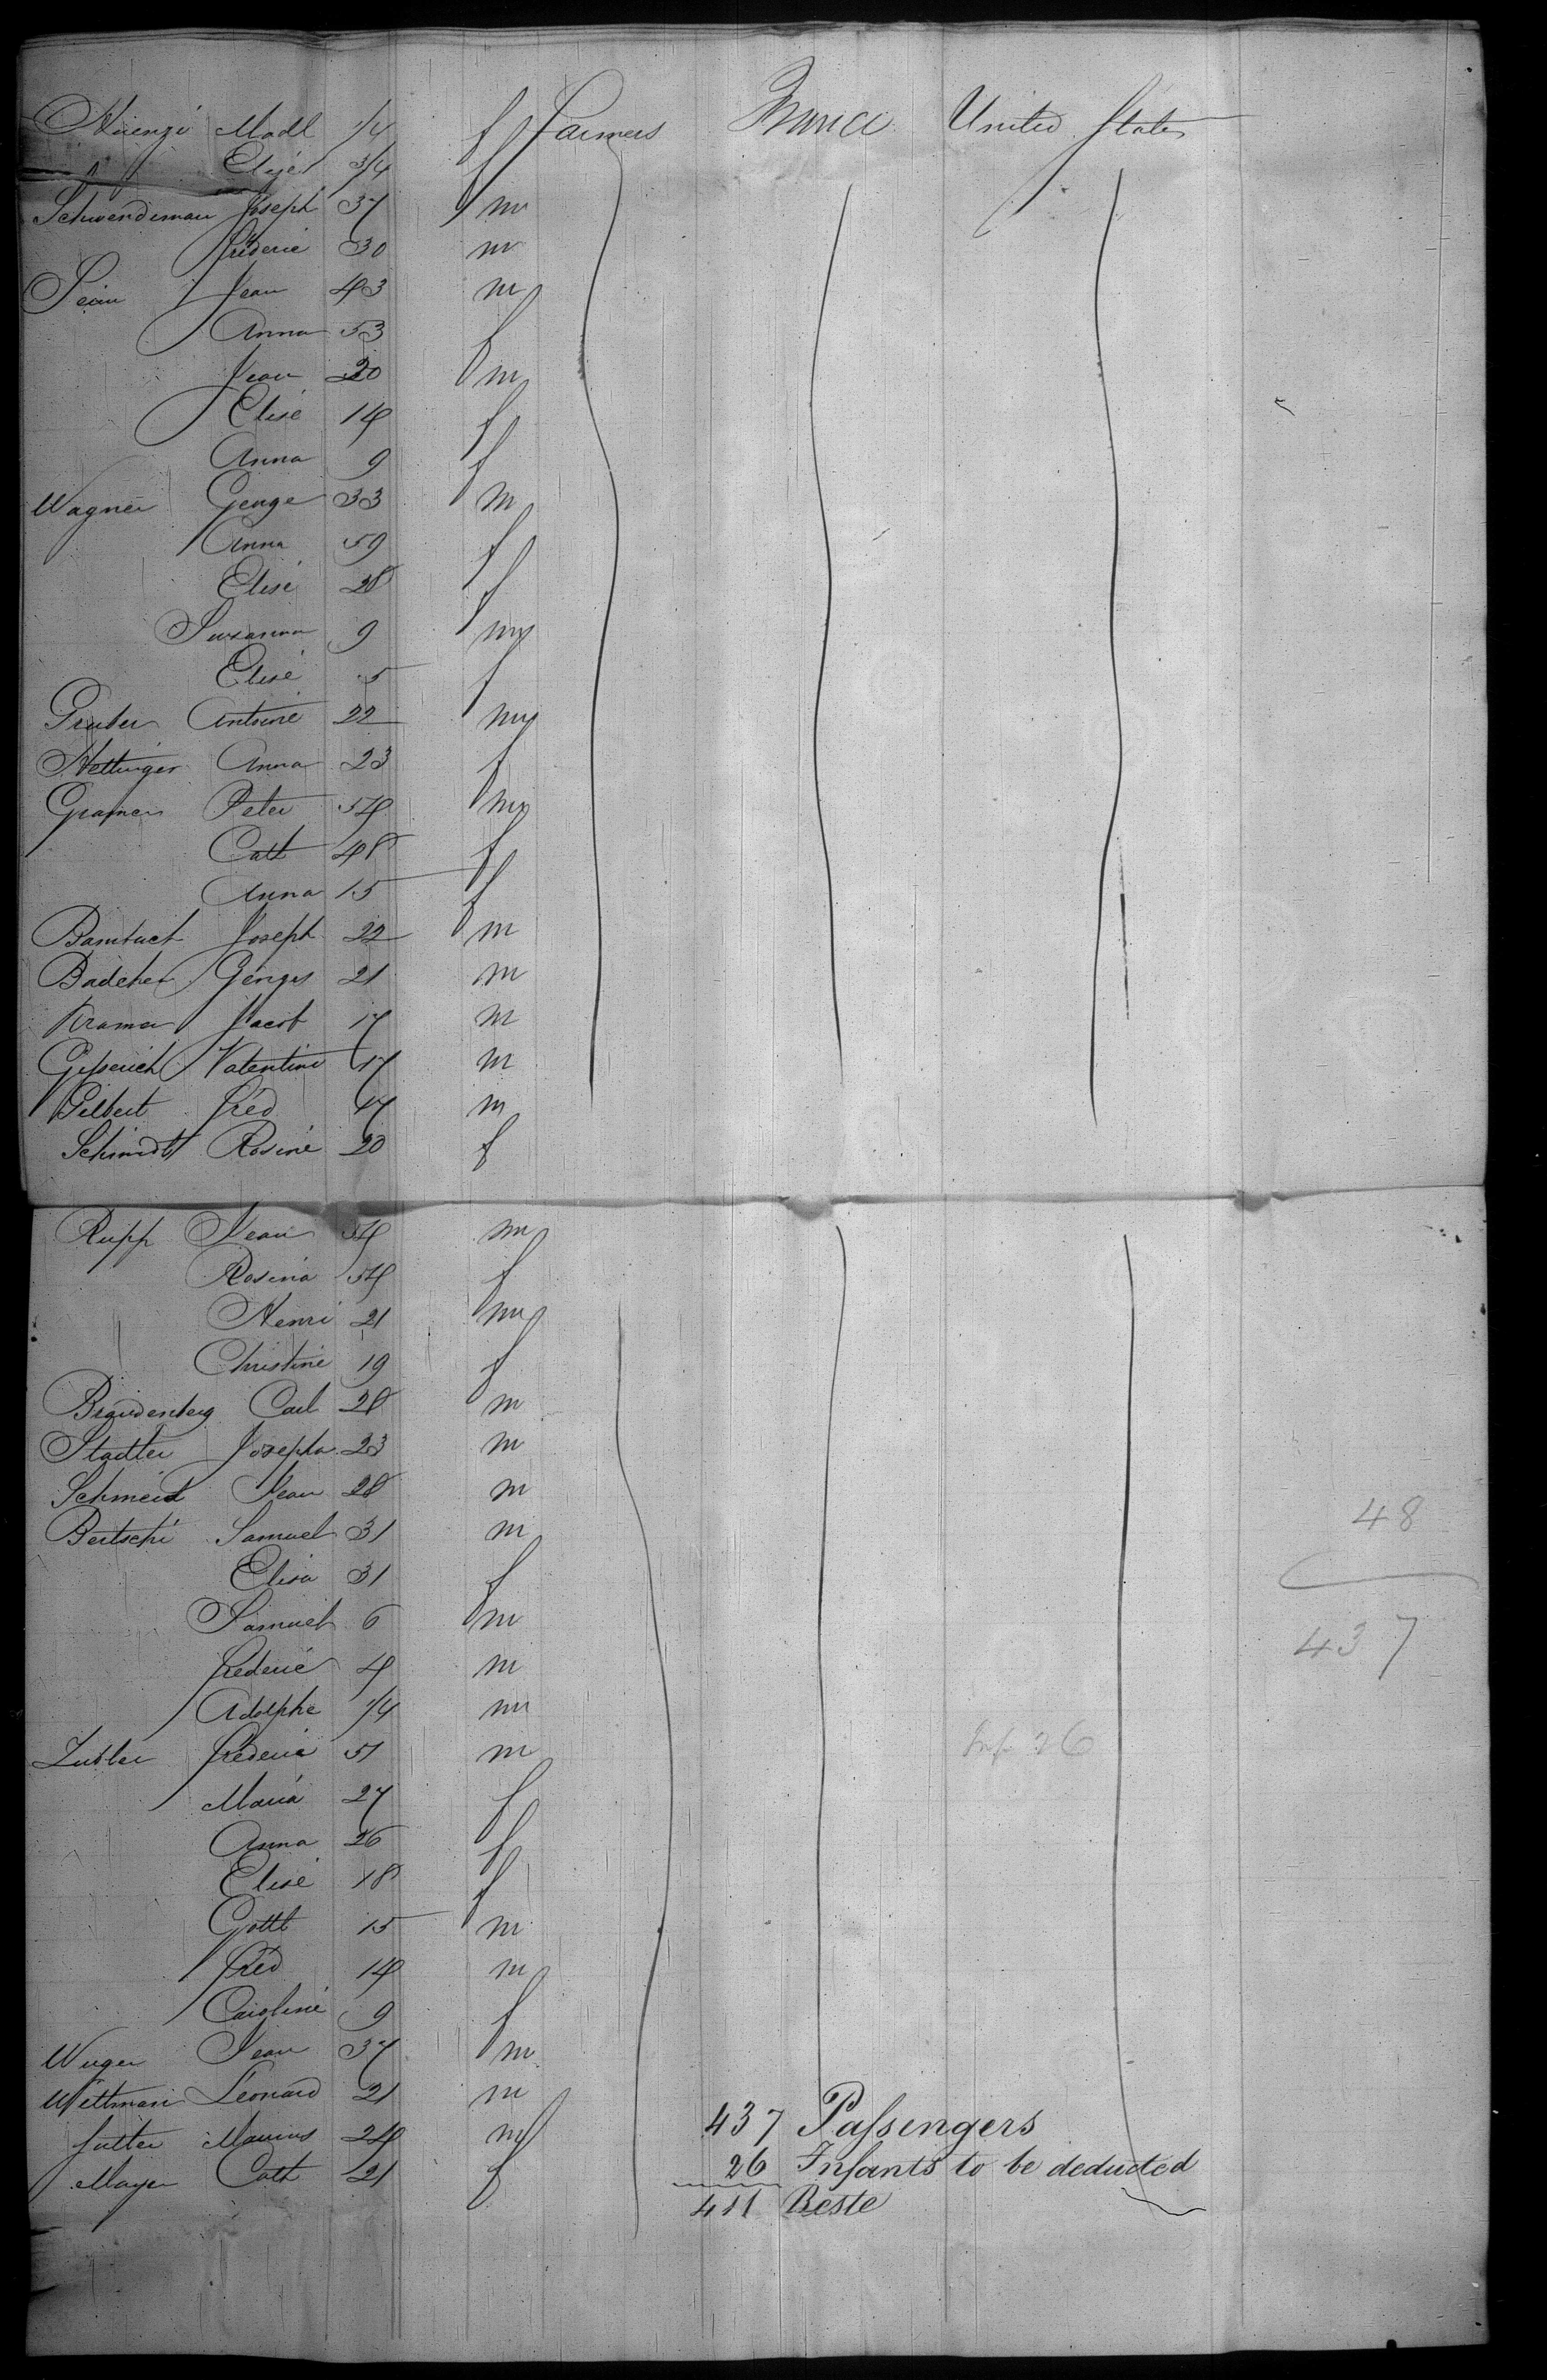 Kuenzi Madl 1/4 f Farmers France United States
Elise 3/4 f
Schwendiman Joseph 37 m
fréderic 30 m
Jean 43 m
Anna 53 f
Jean 20 m
Elise 14 f
Anna 9 f
Wagner George 33 m
Anna 59 f
Elise 28 f
Susanna 9 m
Elise 5 f
Gruber Antoine 22 m
Hettinger Anna 23 f
Gramer Peter 54 m
Cath 48 f
Anna 15 f
Bambach Joseph 22 m
Badcher Georges 21 m
Kramer Jacob 17 m
Valentine 17 m
Gilbert fréd 17 m
Schmidt Rosine 20 f
Rupp Jean 54 m
Rosina 54 f
Henri 21 m
Christine 19 f
Brandenberg Carl 28 m
Stadler Josepha 23 m
Schmeid Jean 28 m
Bertschi Samuel 31 m
48
Elisa 31 f
Samuel 6 m
437
frederic 4 m
Adolphe 1/4 m
Zubler fréderic 51 m
Inf 26
Maria 27 f
Anna 26 f
Elise 18 f
Gottl 15 m
fréd 14 m
Caroline 9 f
Wuger Jean 37 m
Wittman Léonard 21 m
437 Passengers
futter Marius 24 m
Mayer Cath 21 f
26 Infants to be deducted
411 Reste